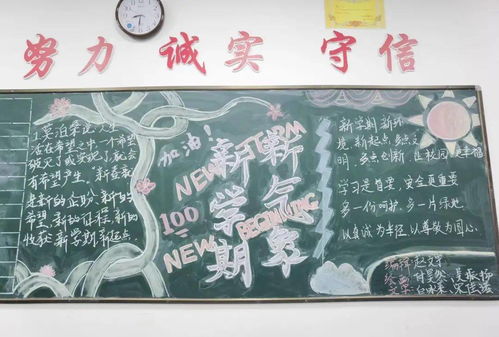 努力 诚实 守信
工莫泊桑说,人生
活在希望之中一个希望
破灭了或实现了,就会
有希望产生。新春象
是新的企盼,新的
希望,新的征程,新的
收获 新学期,新起点
加油!
NEW TERM
新学期
新气象
100
NEW BEGINNING
新学期,新环
境 新起点,多点文
明,多点创新,让校园
学习是首要,安全更重要
多一份呵护,多一片绿地
以真诚为半径,以尊敬为圆心。
编辑:赵文军
绘画:
文字: